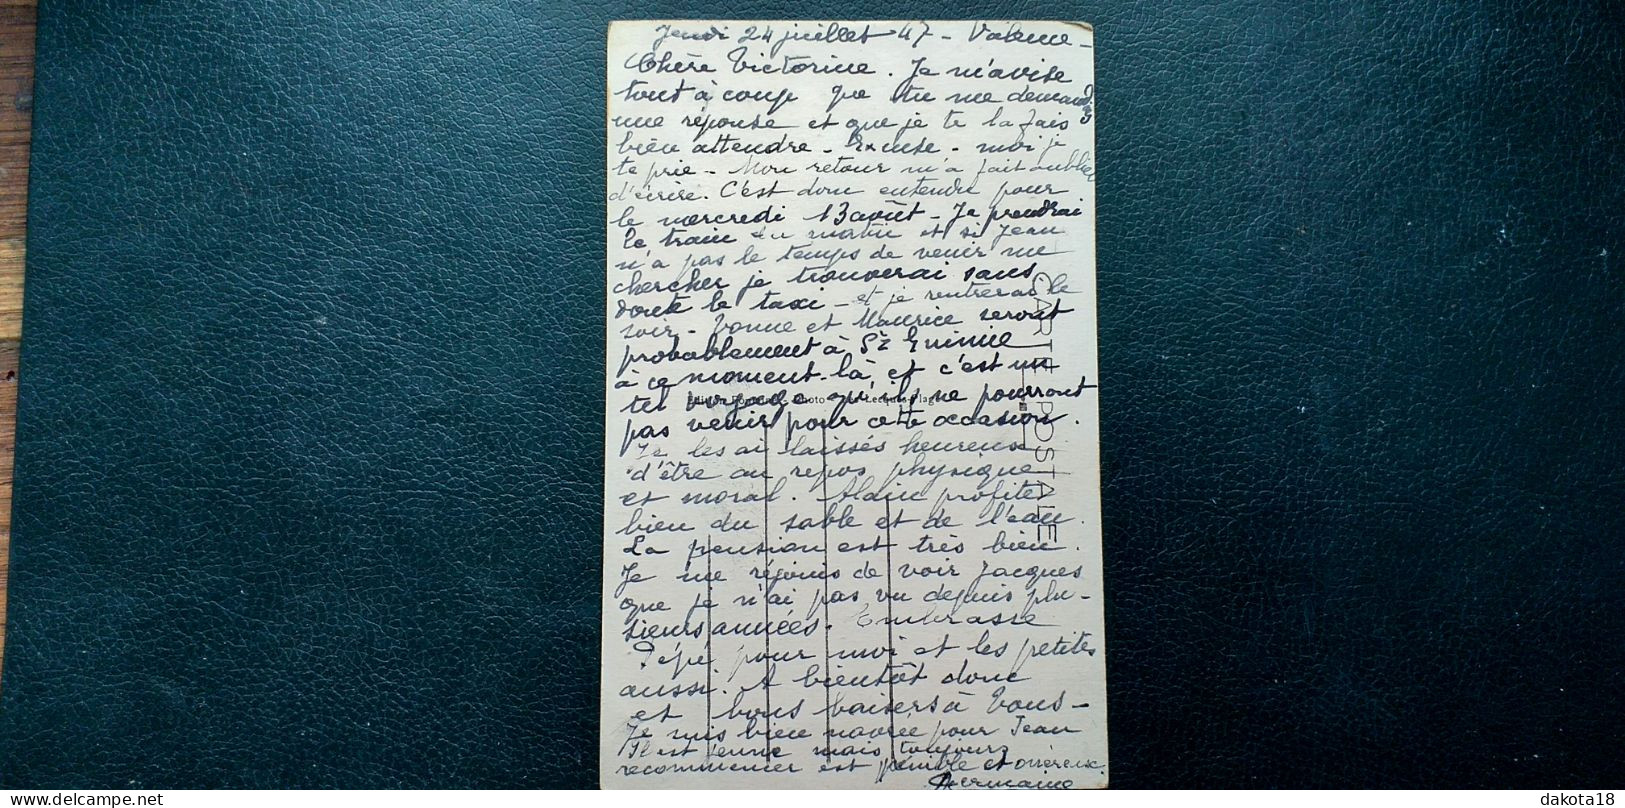 Jeudi 24 juillet 47 - Valence -
Chère Victorine. Je m'avise
tout à coup que tu me demandais
une réponse et que je te la fais
bien attendre - Excuse - moi je
te prie - Mon retour m'a fait oublier
d'écrire. C'est donc entendu pour
le mercredi 13 août - Je prendrai
le train du matin et si Jean
n'a pas le temps de venir me
chercher je trouverai sans
doute le taxi - et je rentrerai le
soir - Yvonne et Maurice seront
probablement à St Enimie
à ce moment-là, et c'est un
tel voyage qu'ils ne pourront
pas venir pour cette occasion.
Je les ai laissés heureux
d'être au repos physique
et moral. Alain profite
bien du sable et de l'eau.
La pension est très bien.
Je me réjouis de voir Jacques
que je n'ai pas vu depuis plu-
sieurs années. Embrasse
Pépé pour moi et les petites
aussi. A bientôt donc
et bons baisers à Vous -
Je suis bien navrée pour Jean
Il est jeune mais toujours
recommencer est pénible et onéreux.
Germaine
CARTE POSTALE
Edition Photo Lecques-Plage
dakota18